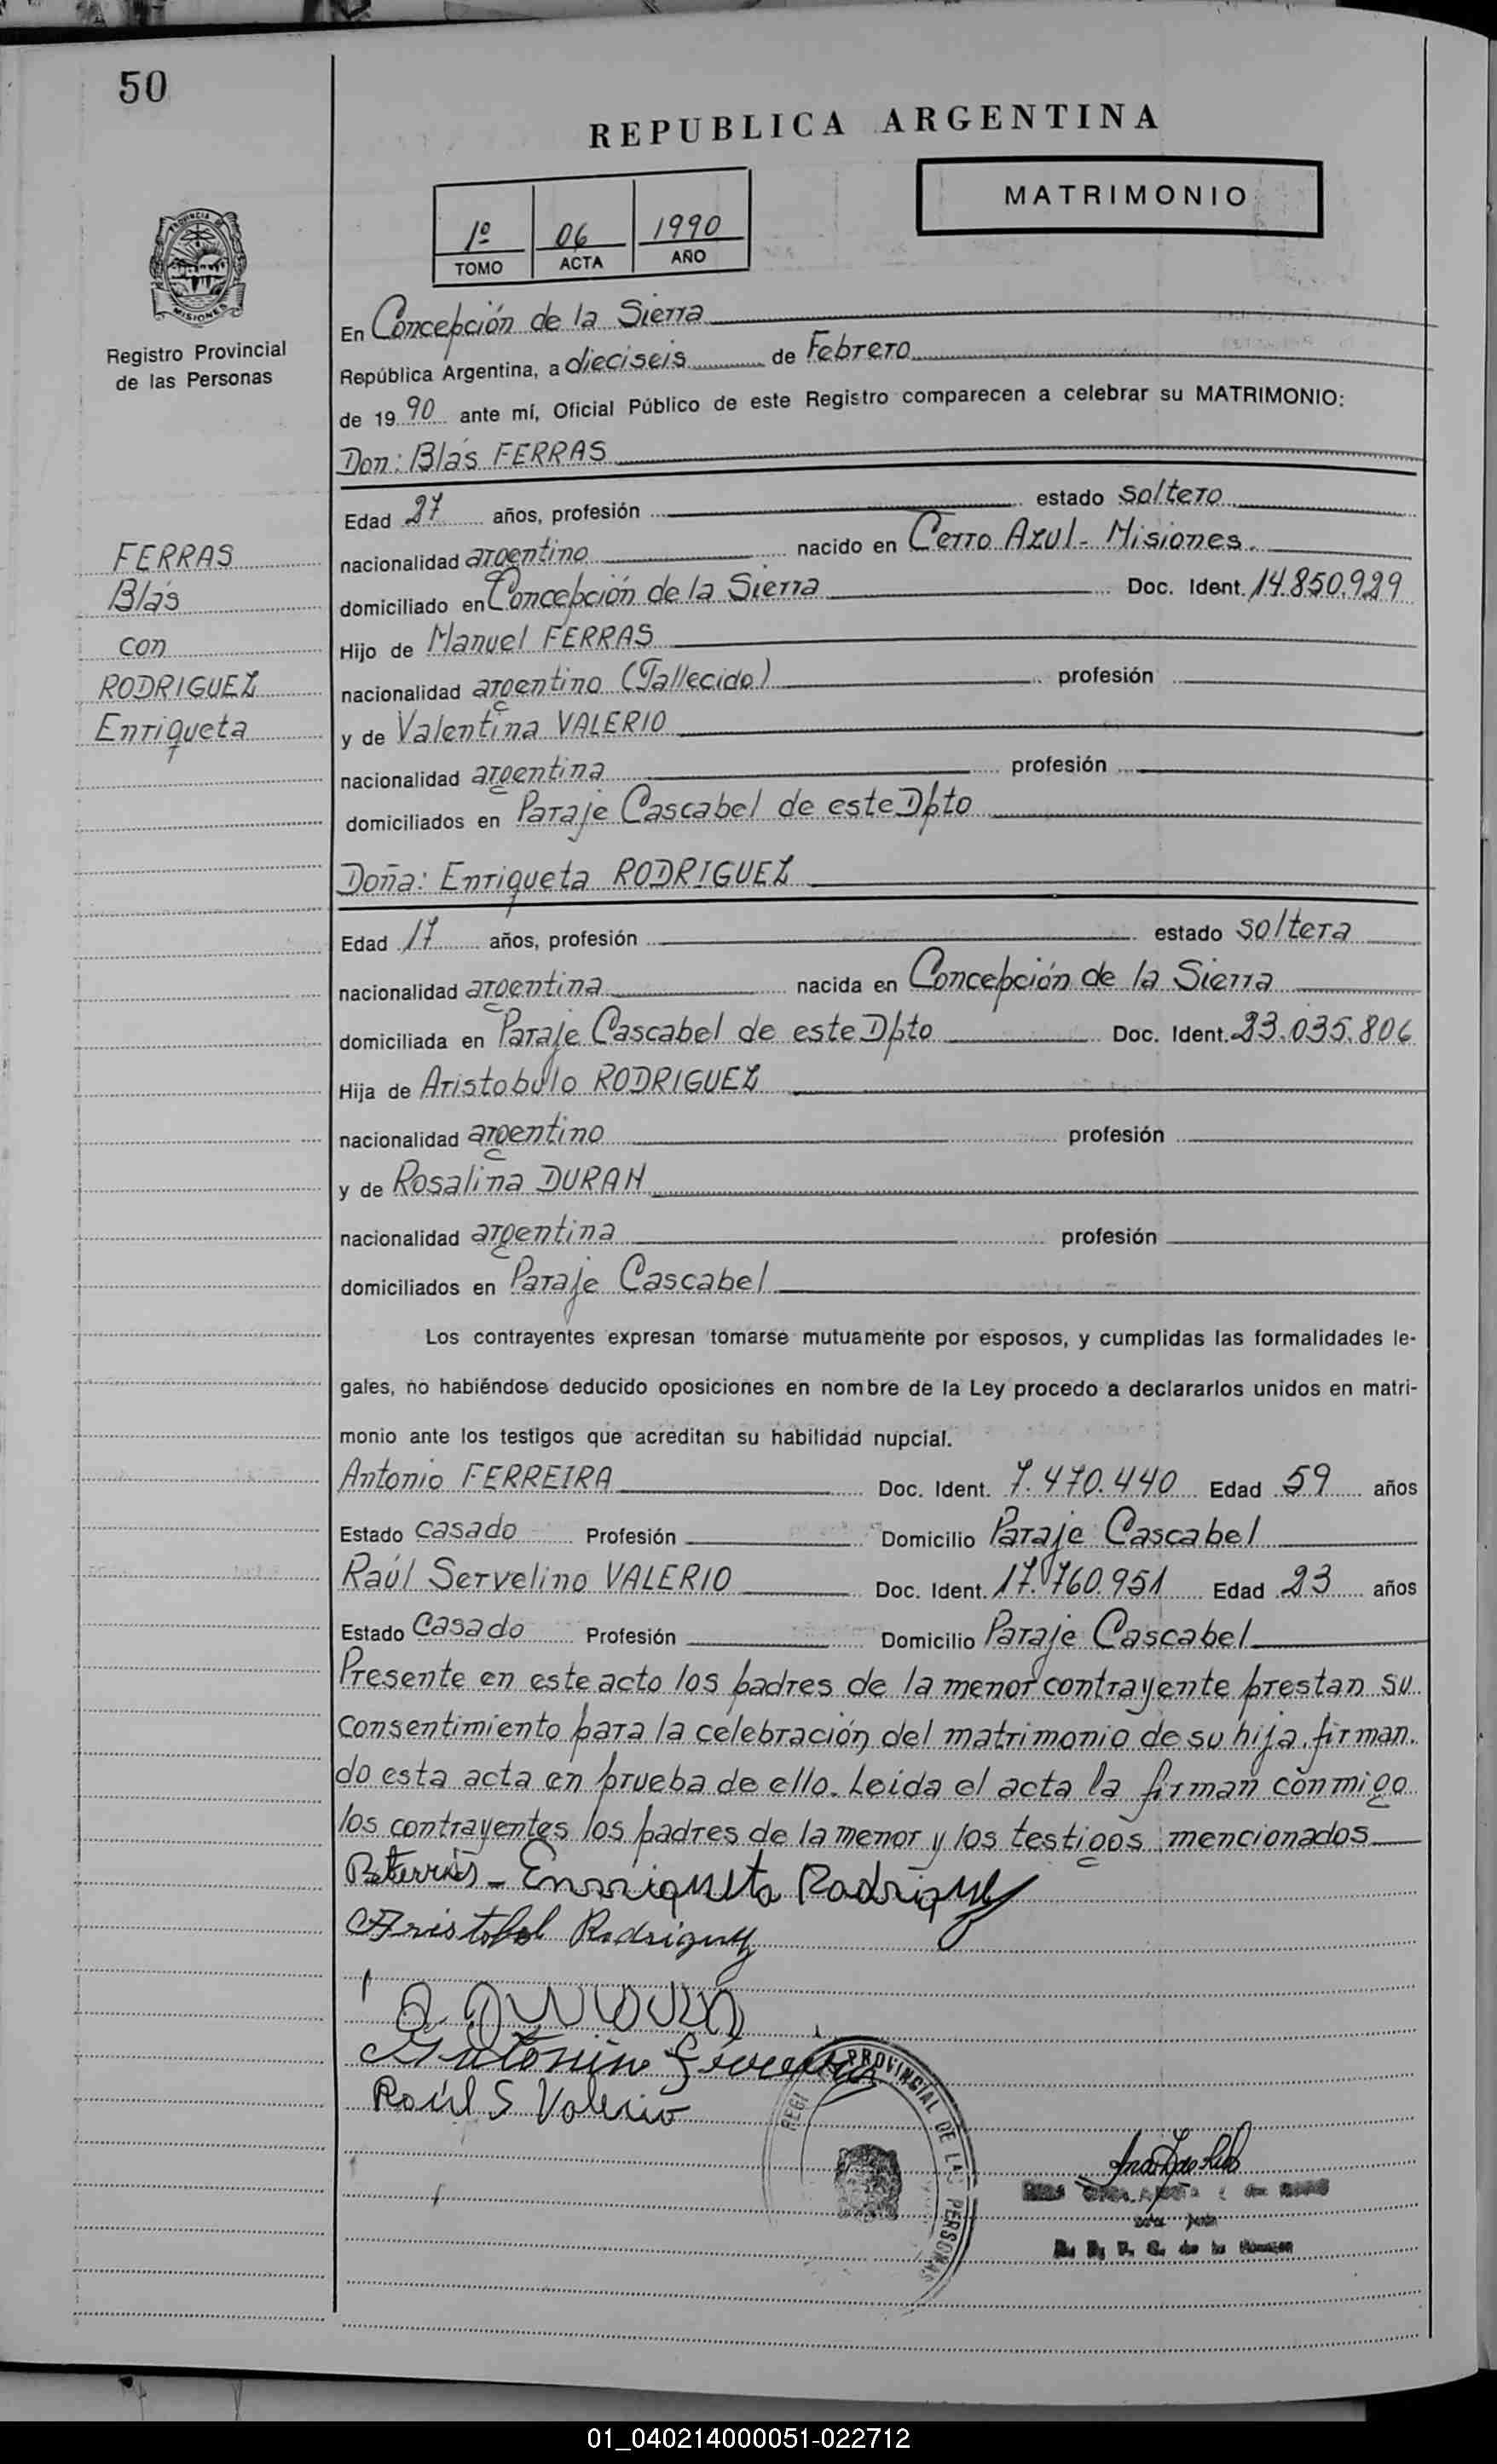 50
REPUBLICA ARGENTINA
MATRIMONIO
1º 06 1990
TOMO ACTA AÑO
PROVINCIA DE
MISIONES
Registro Provincial
de las Personas
En Concepción de la Sierra
República Argentina, a dieciseis de Febrero
de 19 90 ante mí, Oficial Público de este Registro comparecen a celebrar su MATRIMONIO:
Don: Blás FERRAS
Edad 27 años, profesión estado soltero
nacionalidad argentino nacido en Cerro Azul - Misiones.
domiciliado en Concepción de la Sierra Doc. Ident. 14.850.929
Hijo de Manuel FERRAS
nacionalidad argentino (Fallecido) profesión
y de Valentina VALERIO
nacionalidad argentina profesión
domiciliados en Paraje Cascabel de este Dpto
FERRAS
Blás
con
RODRIGUEZ
Enriqueta
Doña: Enriqueta RODRIGUEZ
Edad 17 años, profesión estado soltera
nacionalidad argentina nacida en Concepción de la Sierra
domiciliada en Paraje Cascabel de este Dpto Doc. Ident. 23.035.806
Hija de Aristobulo RODRIGUEZ
nacionalidad argentino profesión
y de Rosalina DURAN
nacionalidad argentina profesión
domiciliados en Paraje Cascabel
Los contrayentes expresan tomarse mutuamente por esposos, y cumplidas las formalidades le-
gales, no habiéndose deducido oposiciones en nombre de la Ley procedo a declararlos unidos en matri-
monio ante los testigos que acreditan su habilidad nupcial.
Antonio FERREIRA Doc. Ident. 7.470.440 Edad 59 años
Estado casado Profesión Domicilio Paraje Cascabel
Raúl Servelino VALERIO Doc. Ident. 17.760.951 Edad 23 años
Estado Casado Profesión Domicilio Paraje Cascabel
Presente en este acto los padres de la menor contrayente prestan su
consentimiento para la celebración del matrimonio de su hija, firman.
do esta acta en prueba de ello. Leida el acta la firman conmigo
los contrayentes los padres de la menor y los testigos mencionados
Enrriqueta Rodriguez
Aristobol Rodriguez
Antonino Ferreira
Raúl S Valerio
PROVINCIAL DE LAS PERSONAS
01_040214000051-022712